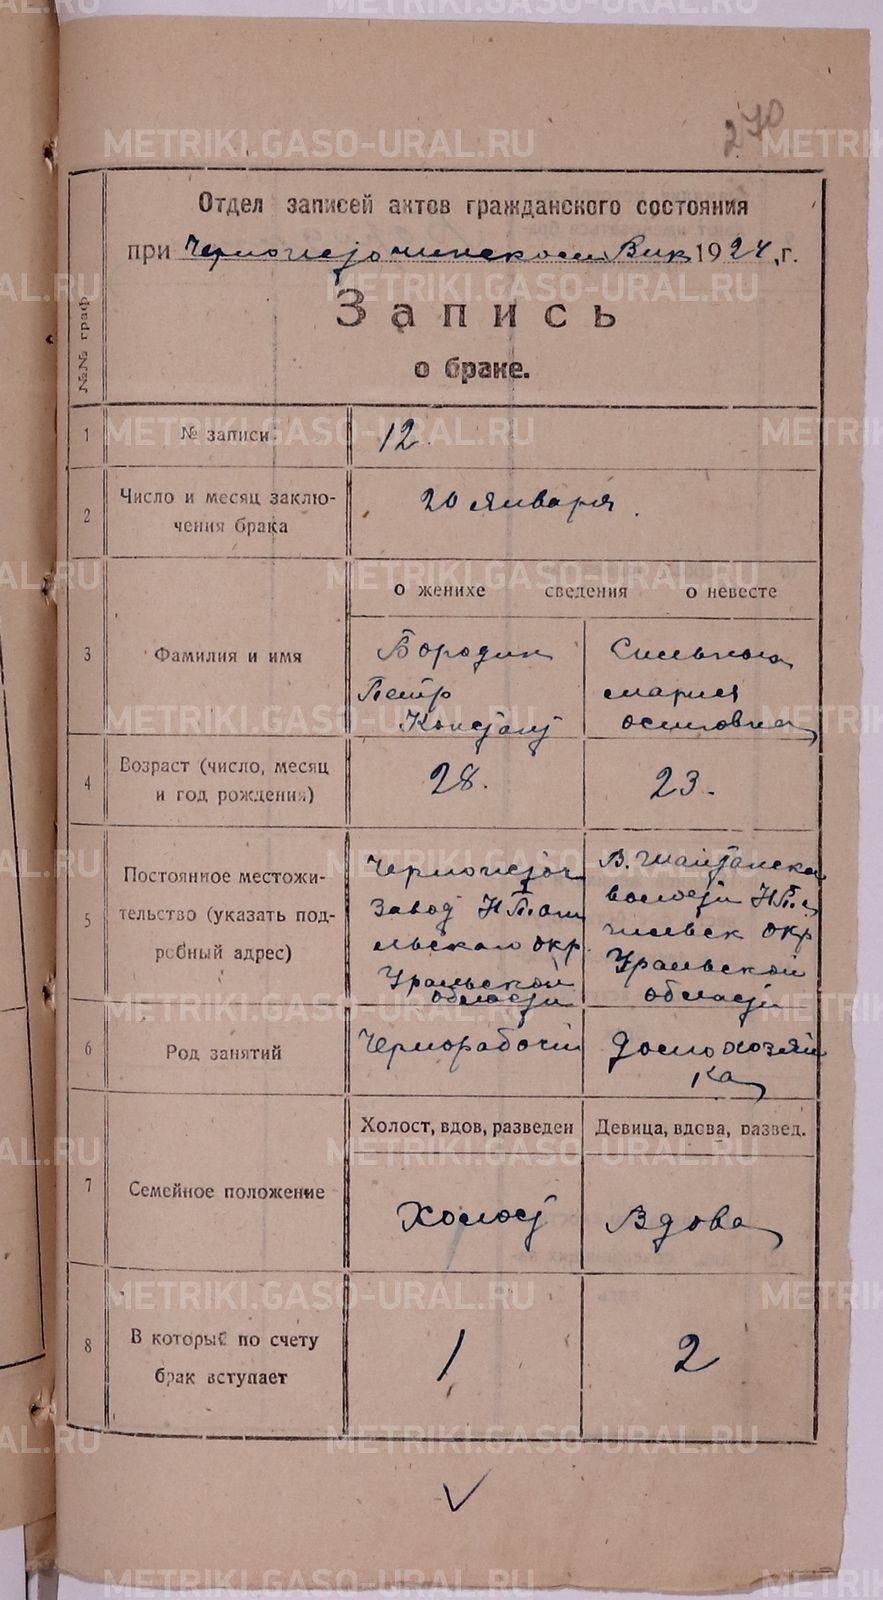 270
Отдел записей актов гражданского состояния
при Черноисточинском Вик 1924 г.
Запись
о браке.
№№ граф
1 № записи 12.
2 Число и месяц заклю-
чения брака
20 января.
о женихе сведения о невесте
3 Фамилия и имя
Бородин
Петр
Констант
Мария
Осиповна
4 Возраст (число, месяц
и год рождения)
28. 23.
5 Постоянное местожи-
тельство (указать под-
робный адрес)
Черноисточ
завод НТаги
льскаго окр.
Уральской
области
В. Шайтанска
волости НТа
гильск окр
Уральской
области
6 Род занятий
Чернорабочий
Домохозяй
ка
7 Семейное положение
Холост, вдов, разведен Девица, вдова, развед.
Холост Вдова
8 В который по счету
брак вступает
1 2
METRIKI.GASO-URAL.RU